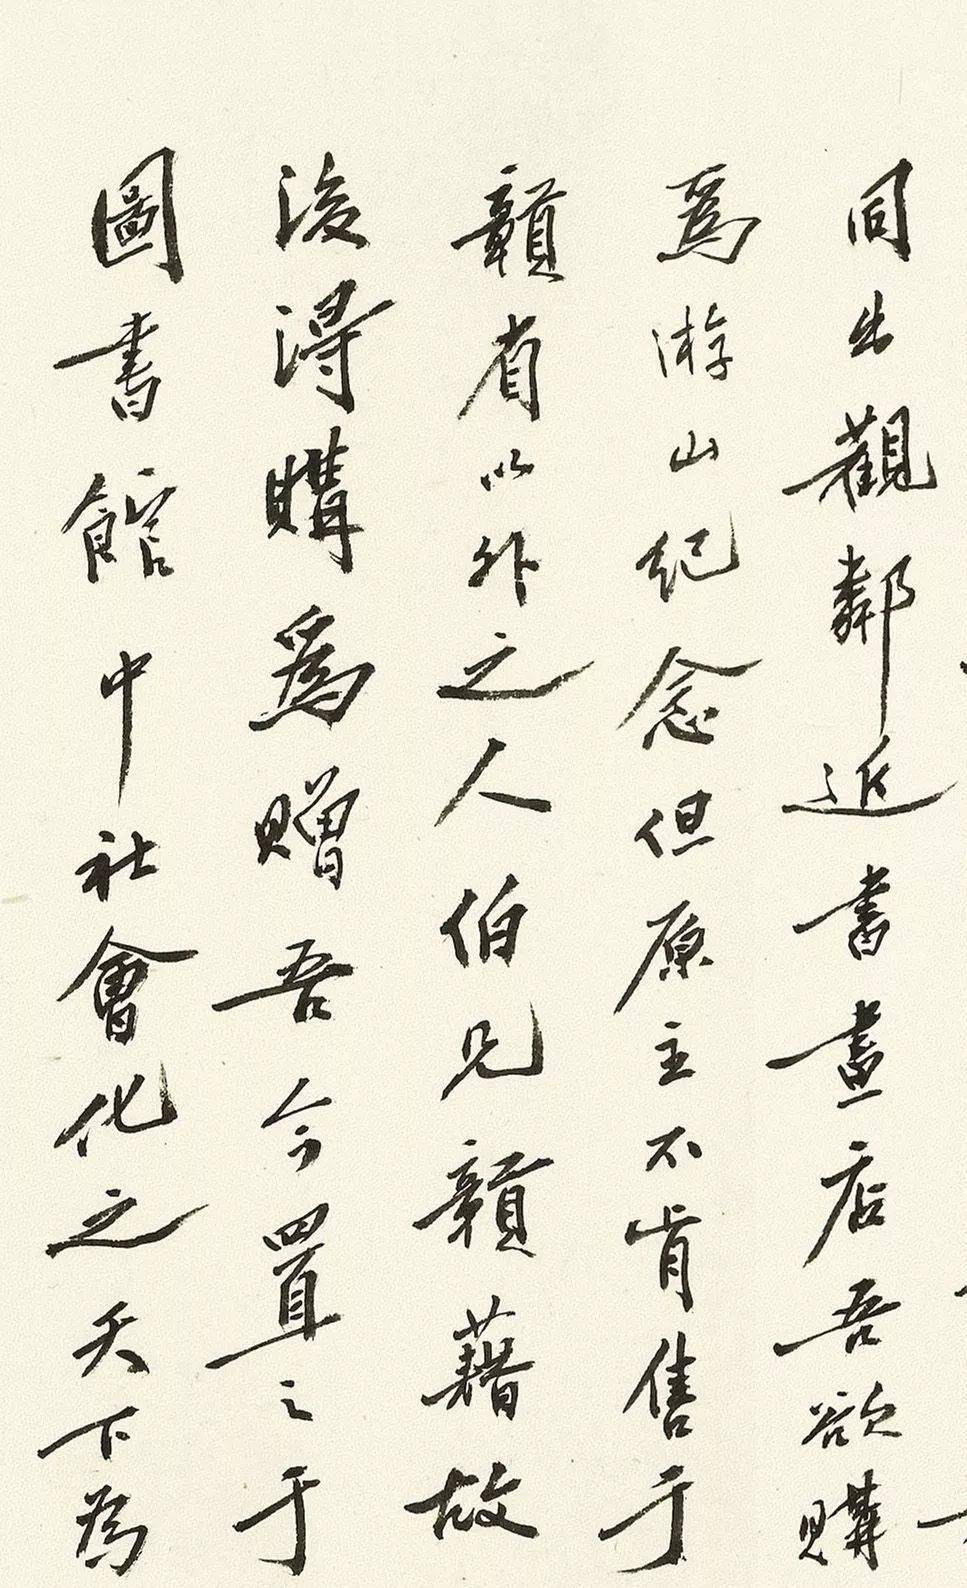 同出觀鄰近書畫店吾欲購
爲游山紀念但原主不肯售于
贛省以外之人伯兄贛藉故
後得購爲贈吾今置之于
圖書館中社會化之天下為